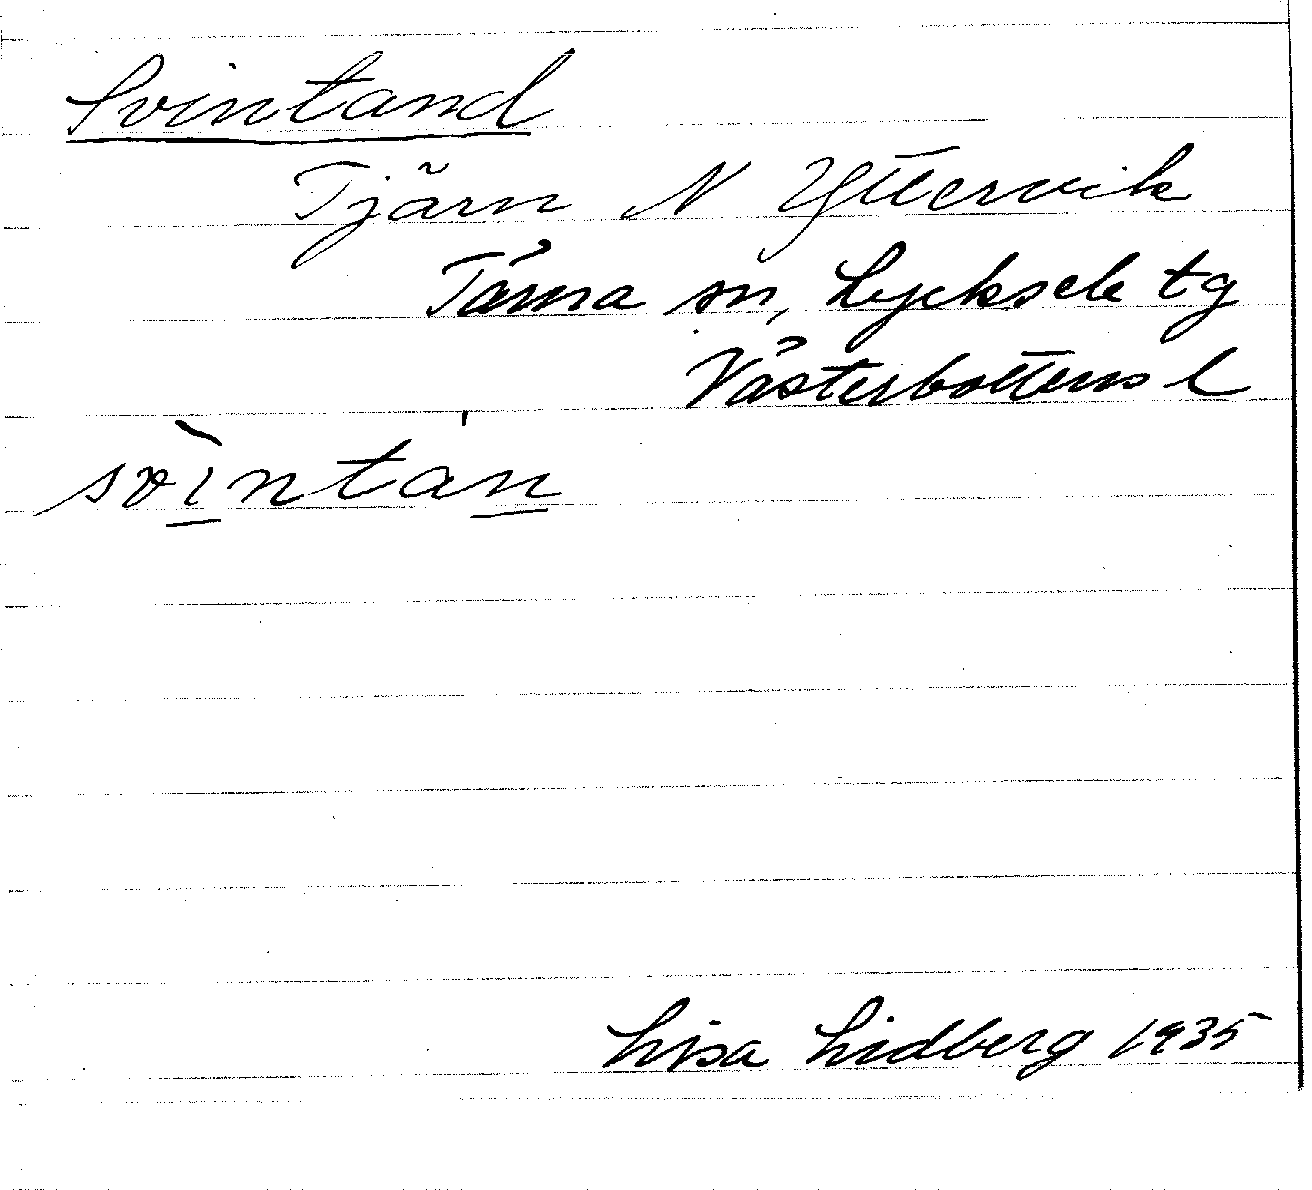 Svintand
Tjärn N Yttervik
Tärna sn, Lycksele tg
Västerbottens l
svì̲ntá̍n̲
Lisa Lidberg 1935